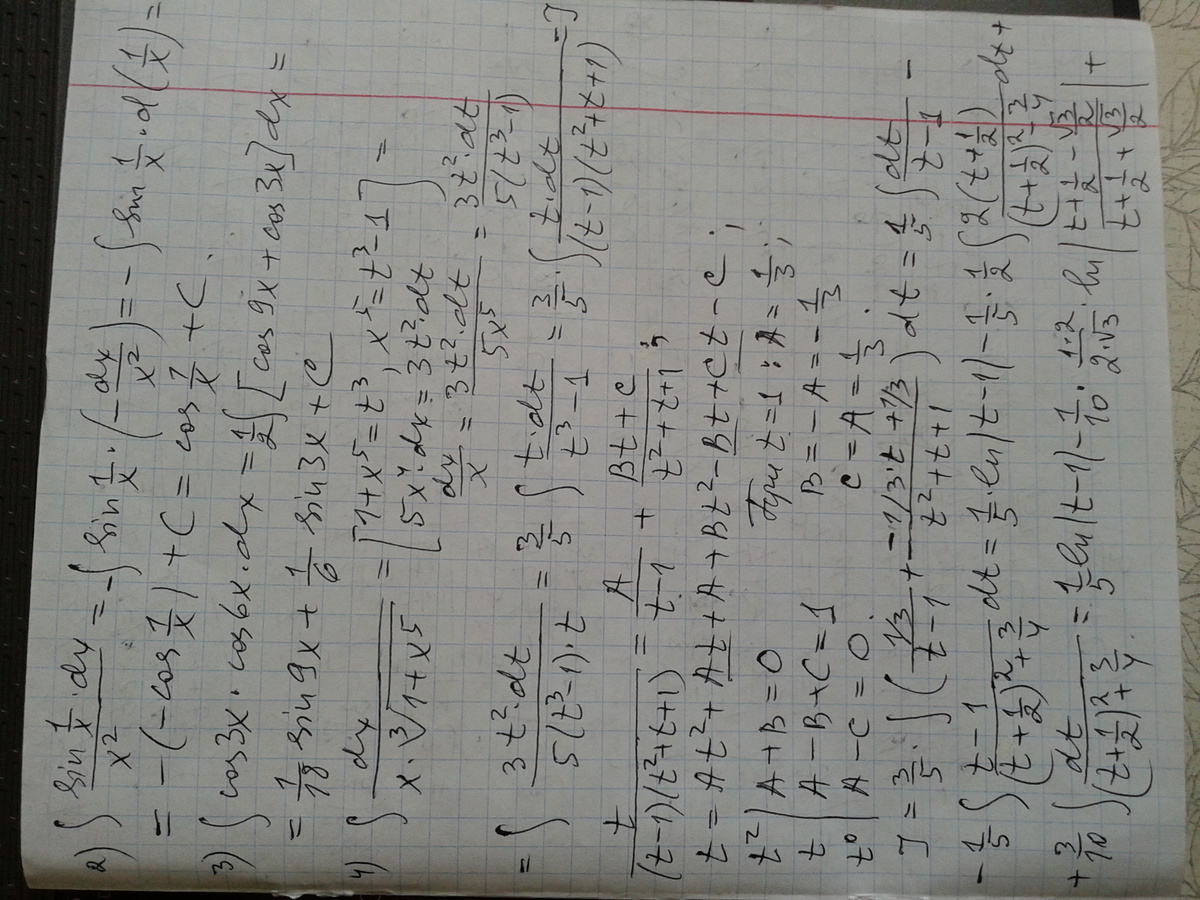 2) ∫ sin 1/x · dx / x² = -∫ sin 1/x · (- dx/x²) = - ∫ sin 1/x · d(1/x) =
= - (- cos 1/x) + C = cos 1/x + C.
3) ∫ cos 3x · cos 6x · dx = 1/2 ∫ [cos 9x + cos 3x] dx =
= 1/18 sin 9x + 1/6 sin 3x + C
4) ∫ dx / (x · ∛(1+x⁵)) = [1+x⁵ = t³, x⁵ = t³-1] =
5x⁴ · dx = 3t² · dt
dx/x = 3t² · dt / 5x⁵ = 3t² · dt / 5(t³-1)
= ∫ 3t² · dt / (5(t³-1) · t) = 3/5 ∫ t · dt / (t³-1) = 3/5 · ∫ t · dt / ((t-1)(t²+t+1) = J
t / ((t-1)(t²+t+1)) = A / (t-1) + (Bt+C) / (t²+t+1);
t = At² + At + A + Bt² - Bt + Ct - C;
t² | A + B = 0 При t=1: A = 1/3;
t | A - B + C = 1 B = -A = -1/3
t⁰ | A - C = 0. C = A = 1/3.
J = 3/5 · ∫ ( 1/3 / (t-1) + (-1/3 · t + 1/3) / (t²+t+1) ) dt = 1/5 ∫ dt / (t-1) -
- 1/5 ∫ (t-1) / ((t+1/2)² + 3/4) dt = 1/5 · ln|t-1| - 1/5 · 1/2 ∫ 2(t+1/2) / ((t+1/2)² - 3/4) dt +
+ 3/10 ∫ dt / ((t+1/2)² + 3/4) = 1/5 ln|t-1| - 1/10 · 1·2 / 2·√3 · ln | (t + 1/2 - √3/2) / (t + 1/2 + √3/2) | +